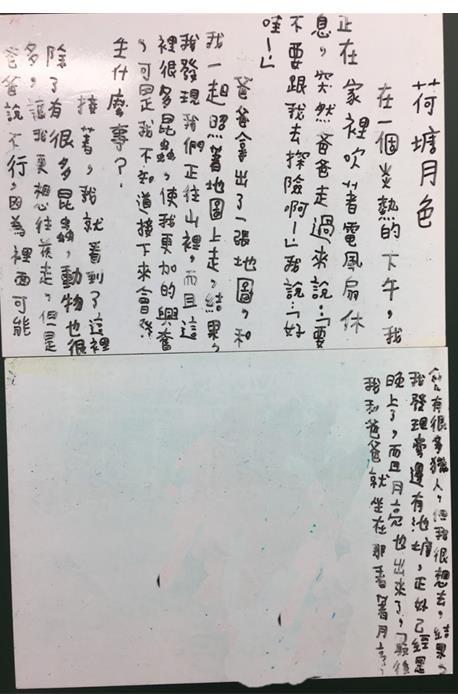 荷塘月色
在一個炎熱的下午，我
正在家裡吹著電風扇休
息，突然爸爸走過來說：「要
不要跟我去探險啊！」我說：「好
哇！」
爸爸拿出了一張地圖，和
我一起照著地圖上走，結果，
我發現我們正往山裡，而且這
裡很多昆蟲，使我更加的興奮
，可是我不知道接下來會發
生什麼事？
接著，我就看到了這裡
除了有很多昆蟲，動物也很
多，讓我更想往前走，但是
爸爸說不行，因為裡面可能
會有很多獵人，但我很想去，結果，
我發現旁邊有池塘，正好已經是
晚上了，而且月亮也出來了，最後
我和爸爸就坐在那看著月亮。